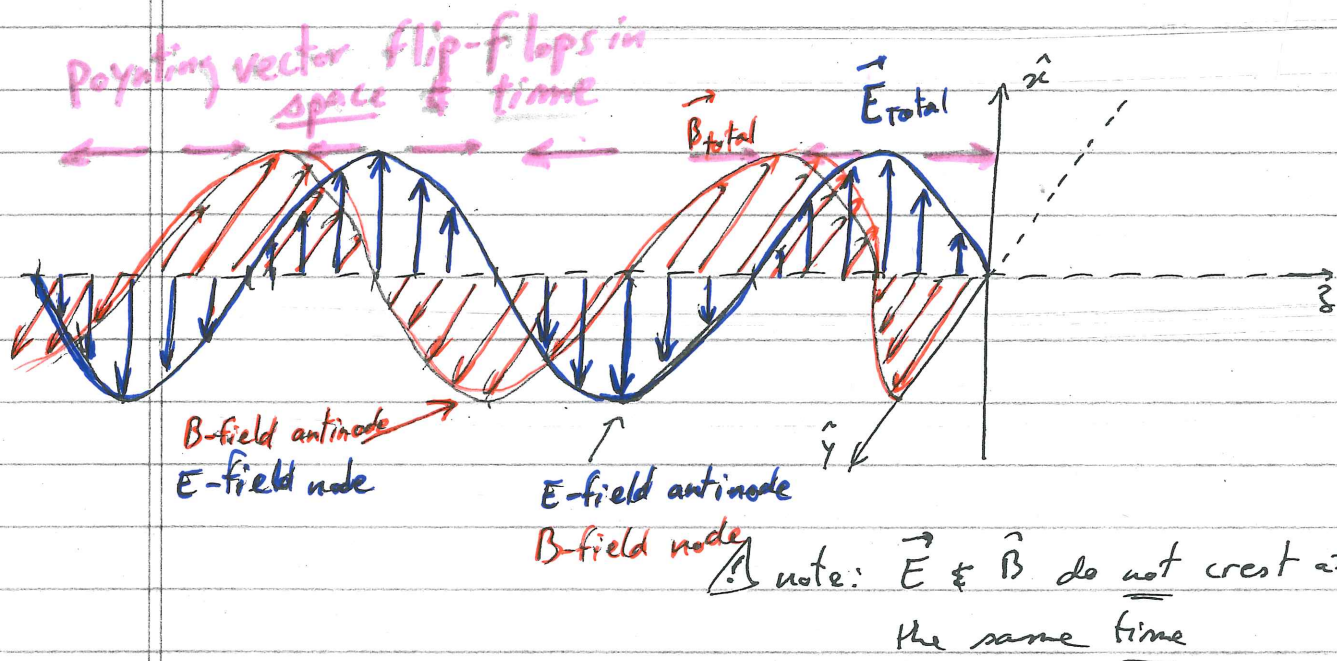 Poynting vector flip-flops in
space & time
x̂
E⃗Total
B⃗total
ẑ
B-field antinode
E-field node
ŷ
E-field antinode
B-field node
⚠ note: E⃗ & B̂ do not crest at
the same time